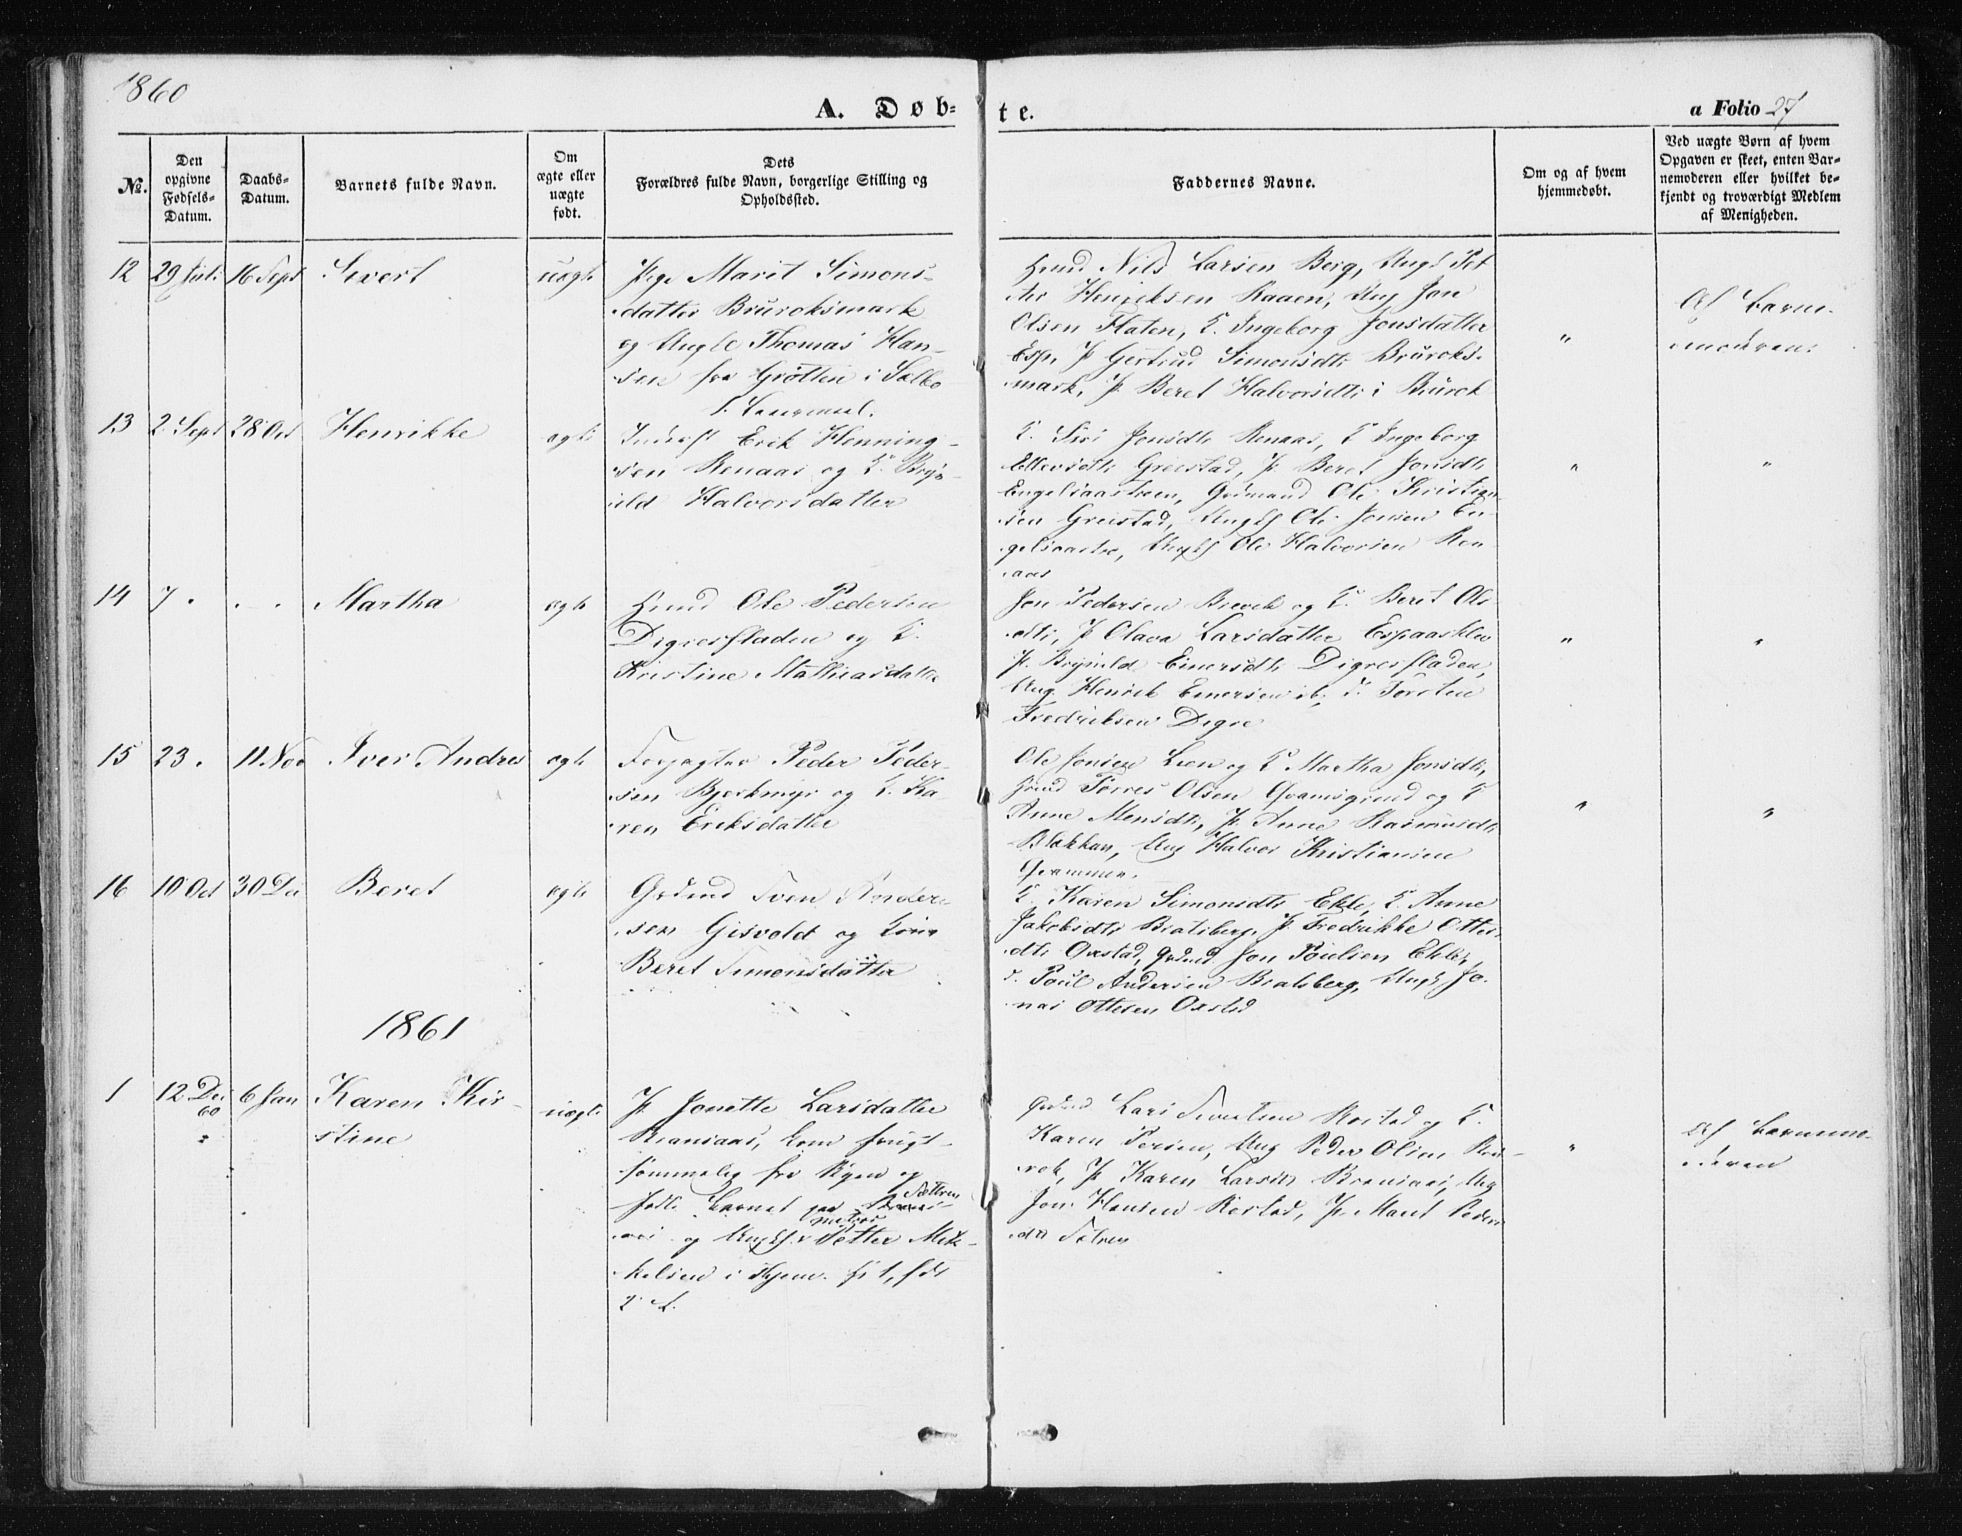 1860
A. Døb-
te.
a Folio 27
№.
Den
opgivne
Fødsels-
Datum.
Daabs-
Datum.
Barnets fulde Navn.
Om
ægte eller
uægte
født.
Dets
Forældres fulde Navn, borgerlige Stilling og
Opholdssted.
Faddernes Navne.
Om og af hvem
hjemmedøbt.
Ved uægte Børn af hvem
Opgaven er skeet, enten Bar-
nemoderen eller hvilket be-
kjendt og troværdigt Medlem
af Menigheden.
12 29 Juli 16 Sept Sivert uægte
Pige Marit Simons-
datter Bruroksmark
og Ungk Thomas Han-
sen fra Grötten i Sælbo
Husmd Nils Larsen Berg, Ungk Pet
ter Henriksen Raaen, Ung Jon
Olsen Flaten, K. Ingeborg Jonsdatter
Esp, P Gjertrud Simonsdtr Bruroks-
mark, P. Beret Halvorsdtr i Brurok
"
Af Barne-
moderen.
13 2 Sept 28 Oct Henrikke ægte
Inderst Erik Henning-
sen Renaas og K. Bryn-
ild Halvorsdatter
K. Siri Jonsdtr Renaas, K Ingeborg
Ellevsdtr Greistad, P. Beret Jonsdtr
Engelsaastrøen, Grdmand Ole Kristian-
sen Greistad, Ungkf Ole Jonsen En-
gelsaastrø, Ungkf Ole Halvorsen Ren
aas
"
"
14 7 . . - . Martha ægte
Husmd Ole Pedersen
Digresfladen og K.
Kristine Mathiasdatter
Jon Pedersen Brevek og K. Berit Ols-
dtr, P Olava Larsdatter Espaasklev
P. Brynild Einersdtr Digresfladen,
Ung Henrik Einersen ib, d. Torsten
Fredriksen Digre
"
"
15 23 . 11 Nov Iver Andres ægte
Forpagter Peder Peder-
sen Bjerkmyr og K. Ka-
ren Eriksdatter
Ole Jonsen Lien og K Martha Jonsdtr,
Grmd Torres Olsen Qvamsgrind og K
Anne Monsdtr, P. Anne Rasmusdtr
Blækkan, Ung Halvor Kristiansen
Qvammen.
"
"
16 10 Oct 30 De Beret ægte
Grdmd Sven Ander-
sen Gisvold og Kone
Beret Simonsdatter
K. Karen Simonsdtr Ekle, K. Anne
Jakobsdtr Bratsberg, P. Fredrikke Ottes
dtr Oxstad, Grdmd Jon Poulsen Ekle,
d. Poul Andersen Bratsberg, Ungk Jo-
nas Ottesen Oxstad
1861
1 12 Dec
60 6 Jan Karen Kir-
stine uægte
P. Jonette Larsdatter
Kom frugt-
sommelig fra Byen og
fødte Barnet paa
Sættren
og Ungkf. Petter Mik-
kelsen i
Grdmd Lars Sivertsen Rostad og K.
Karen Persen, Ung Peder Olsen
P Karen Larsdtr Ung
Jon Hansen Rostad, P. Marit Peders
dtr Solven
"
Af Barnemo-
deren